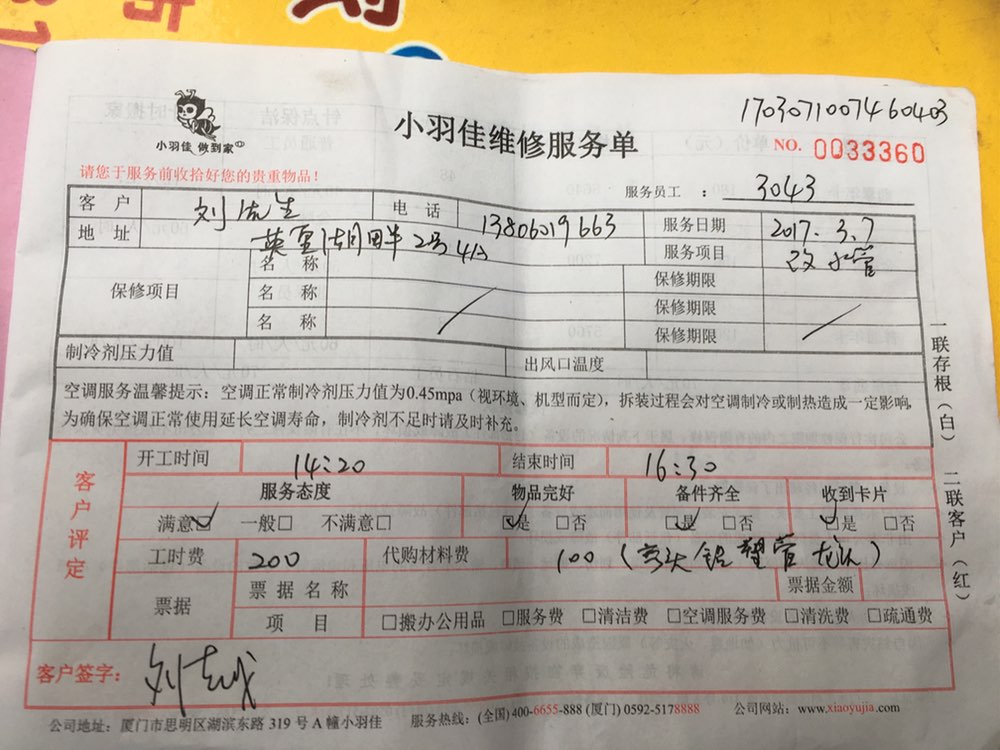 1703071007460403
小羽佳 做到家
小羽佳维修服务单
NO. 0033360
请您于服务前收拾好您的贵重物品！
服务员工 ： 3043
客 户 刘 先生 电 话 13806019663 服务日期 2017.3.7
地 址 湖畔2号4A 服务项目 改水管
保修项目
名 称 保修期限
名 称 保修期限
名 称 保修期限
制冷剂压力值 出风口温度
空调服务温馨提示：空调正常制冷剂压力值为0.45mpa（视环境、机型而定），拆装过程会对空调制冷或制热造成一定影响，
为确保空调正常使用延长空调寿命，制冷剂不足时请及时补充。
客户评定
开工时间 14:20 结束时间 16:30
服务态度 物品完好 备件齐全 收到卡片
满意☑ 一般□ 不满意□ ☑是 □否 ☑是 □否 ☑是 □否
工时费 200 代购材料费 100（弯头铝塑管龙头）
票据 票 据 名 称 票据金额
项 目 □搬办公用品 □服务费 □清洁费 □空调服务费 □清洗费 □疏通费
客户签字：
一联存根（白）
二联客户（红）
公司地址：厦门市思明区湖滨东路 319 号 A 幢小羽佳 服务热线：(全国) 400-6655-888 (厦门) 0592-5178888 公司网站：www.xiaoyujia.com